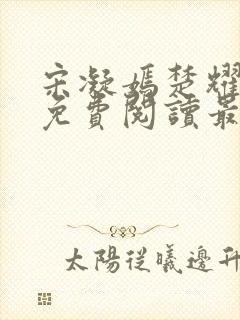 宋凝嫣楚耀
免費閱讀最
太陽從曦邊升